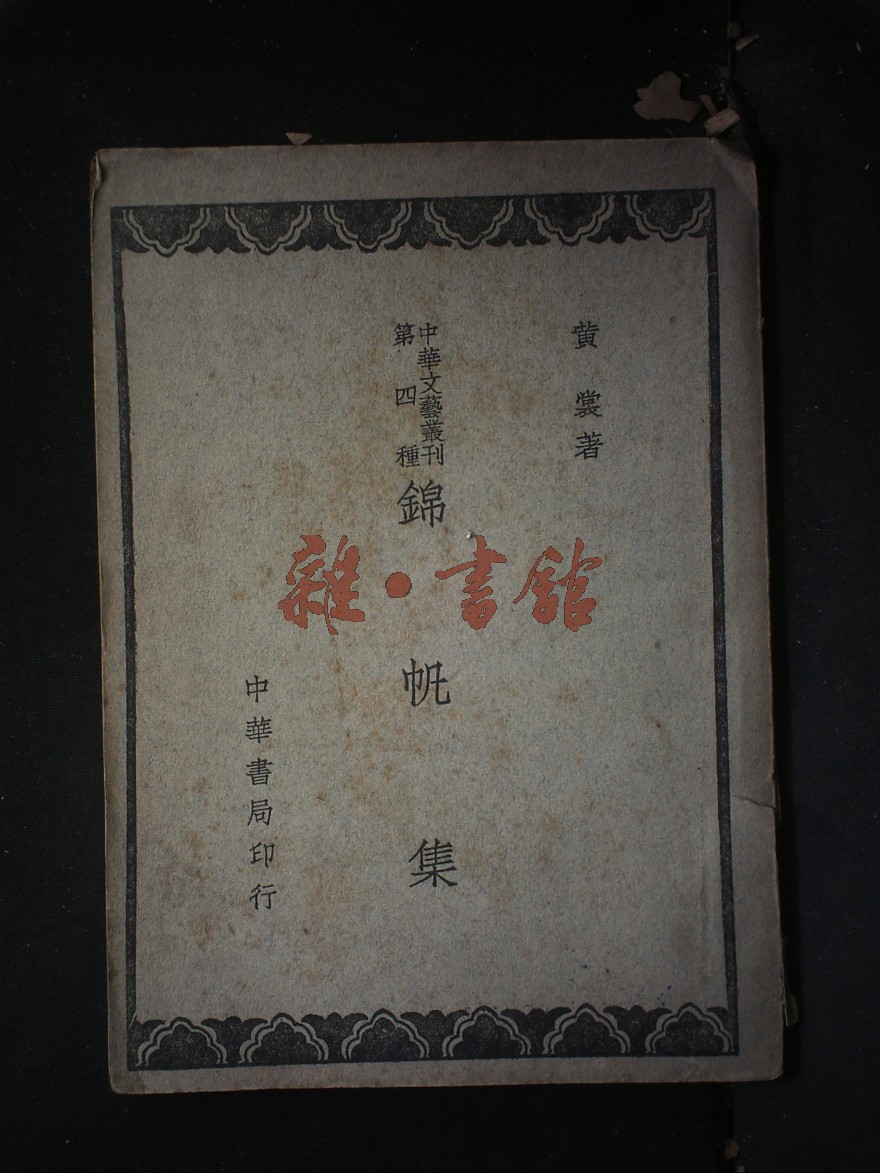 黄裳著
中華文藝叢刊
第四種
錦帆集
中華書局印行
雜·書館